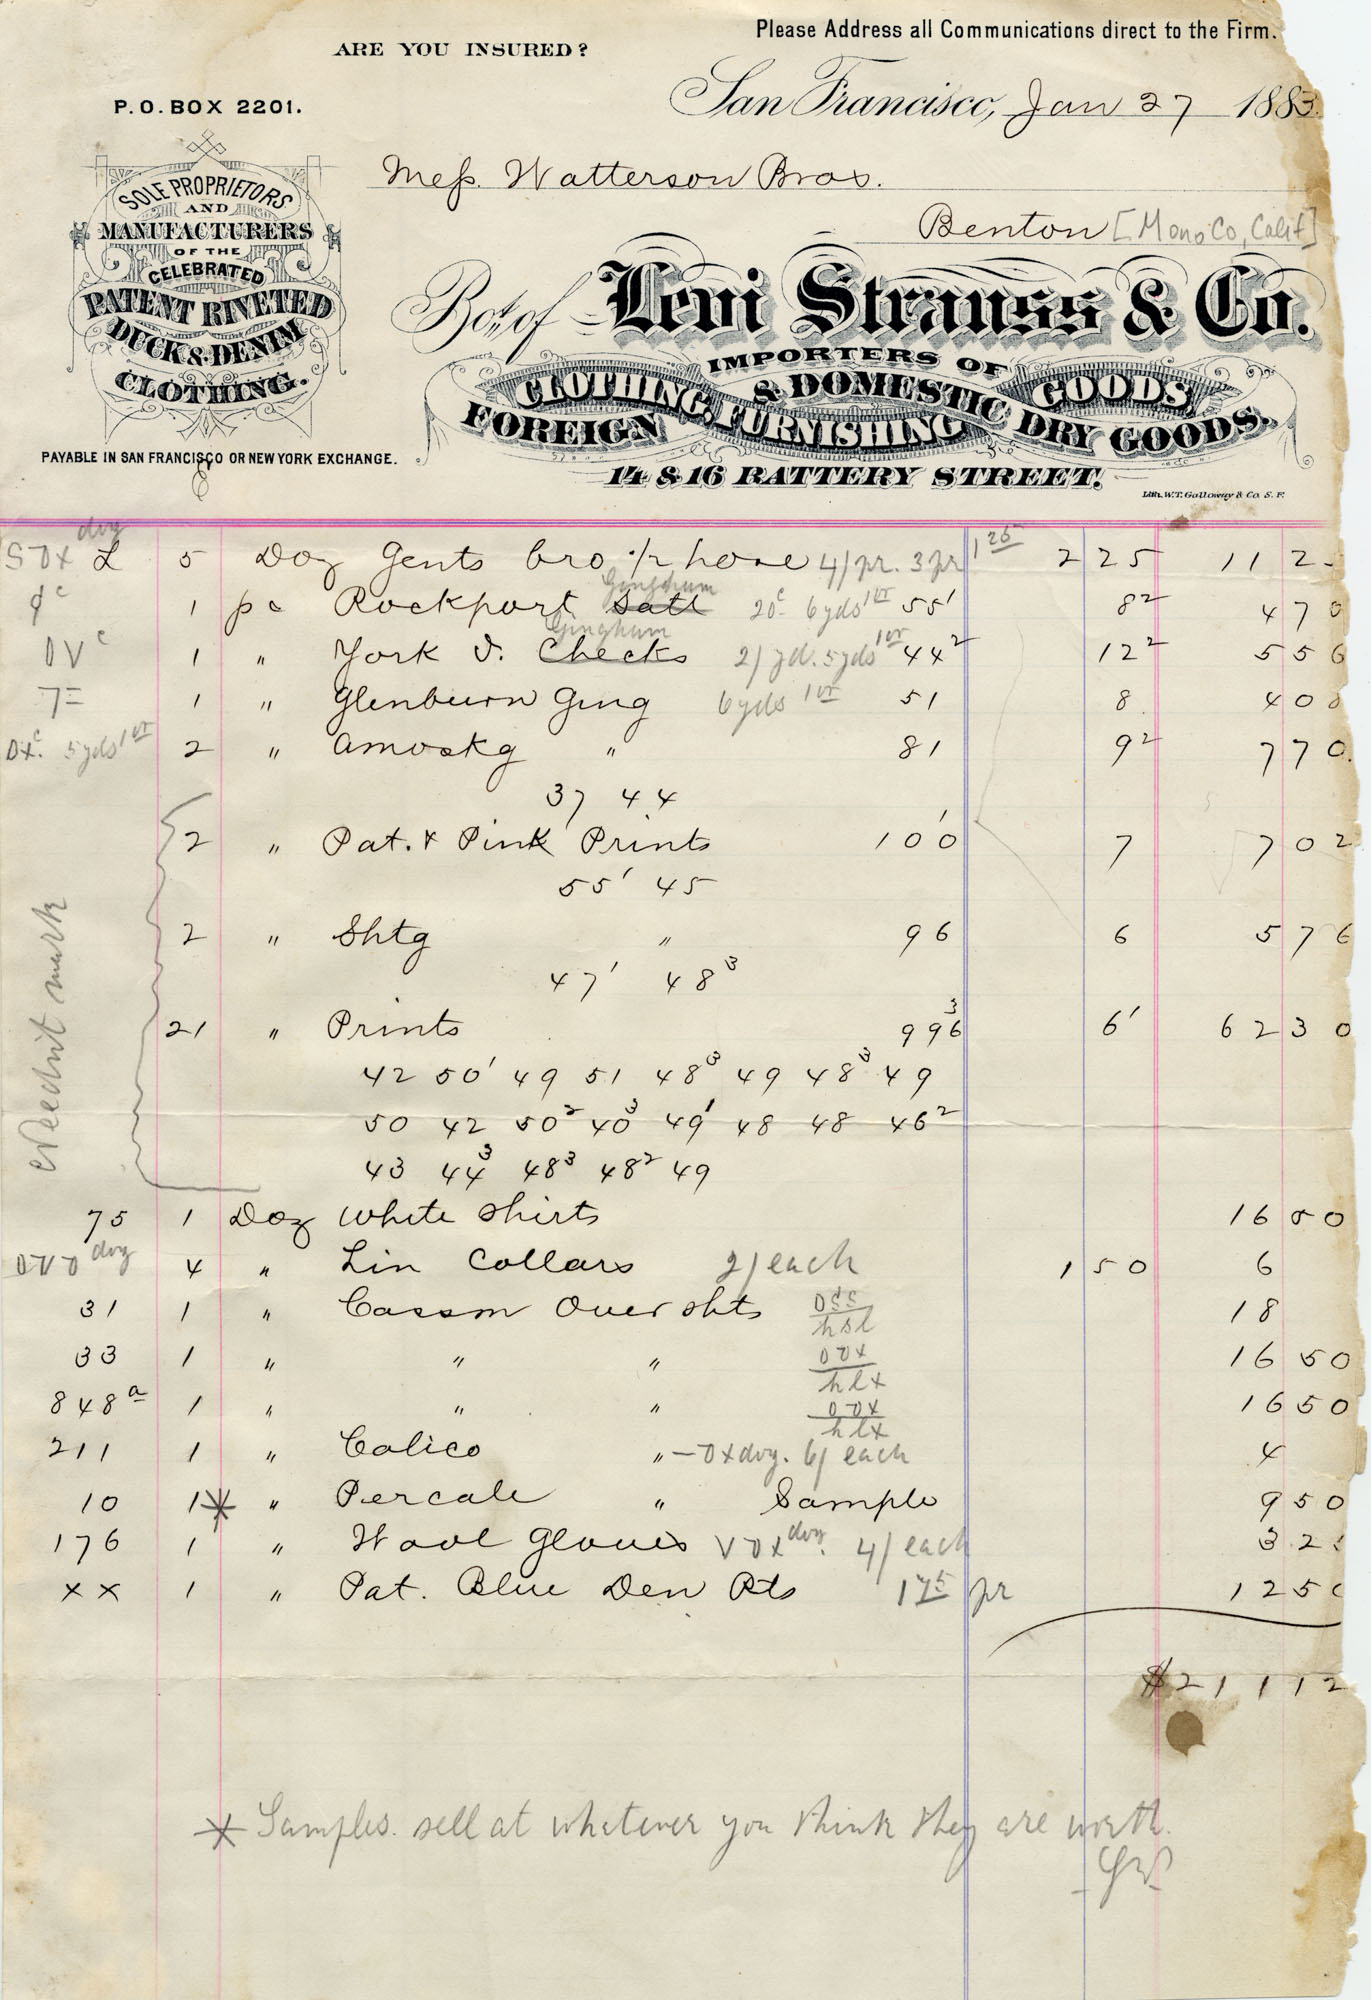 Please Address all Communications direct to the Firm.
ARE YOU INSURED?
P.O. BOX 2201.
San Francisco, Jan 27 1883.
Mess. Watterson Bros.
Benton [Mono Co, Calif]
SOLE PROPRIETORS
AND
MANUFACTURERS
OF THE
CELEBRATED
PATENT RIVETED
DUCK & DENIM
CLOTHING.
PAYABLE IN SAN FRANCISCO OR NEW YORK EXCHANGE.
Bot. of Levi Strauss & Co.
IMPORTERS OF
CLOTHING, FURNISHING GOODS
FOREIGN & DOMESTIC DRY GOODS.
14 & 16 BATTERY STREET.
Lith. W.T. Galloway & Co. S. F.
5 Doz Gents bro 1/2 hose 4/pr. 3 pr 1 25 2 25 11 2
Gingham
1 pc Rockport 20c 6 yds 55' 8 2 4 70
Gingham
1 " York I. Checks 2/yd. 5 yds 44 2 12 2 5 56
1 " Glenburn Ging 6 yds 51 8 4 08
5 yds 2 " Amoskg " 81 9 2 7 70.
37 44
2 " Pat. & Pink Prints 100' 7 7 02
55' 45
2 " Shtg " 96 6 5 76
47' 48 3
21 " Prints 996 3 6' 62 30
42 50' 49 51 48 3 49 48 3 49
50 42 50 2 40 3 49' 48 48 46 2
43 44 3 48 3 48 2 49
mark
75 1 Doz White Shirts 16 50
4 " Lin Collars 2/each 1 50 6
31 1 " Cassm Over Shts 18
33 1 " " " 16 50
848a 1 " " " 16 50
211 1 " Calico " 6/ each 4
10 1* " Percale " Sample 9 50
176 1 " Wool Gloves 4/ each 3 2
xx 1 " Pat. Blue Den Pts 1 75 pr 12 50
$211 12
* Samples. sell at whatever you think they are worth.